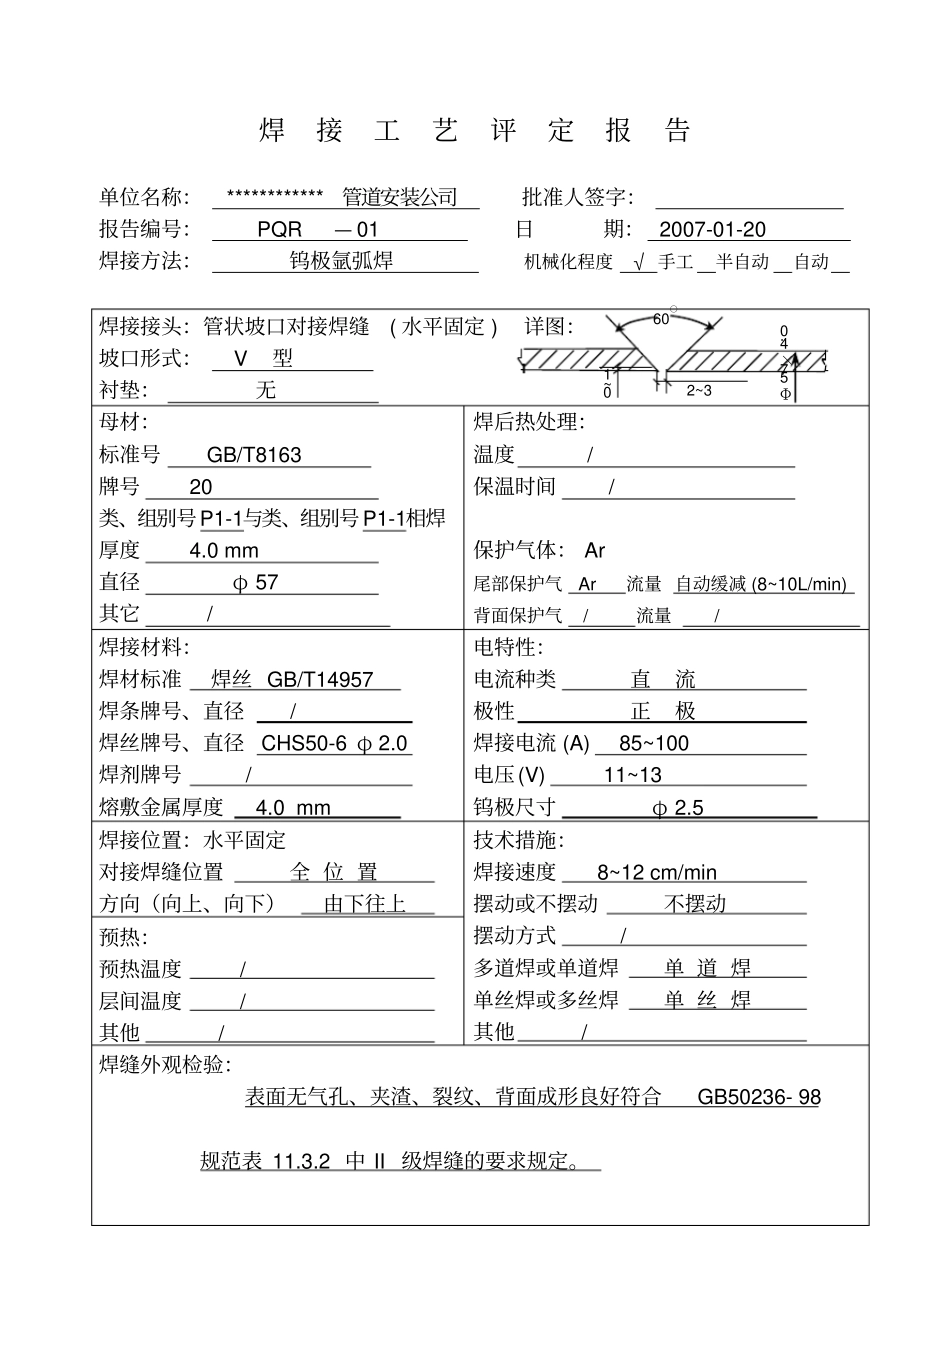 焊 接 工 艺 评 定 报 告
单位名称： ************ 管道安装公司 批准人签字：
报告编号： PQR —01 日 期： 2007-01-20
焊接方法： 钨极氩弧焊 机械化程度 √ 手工 半自动 自动
焊接接头：管状坡口对接焊缝 (水平固定) 详图：
坡口形式： V 型
衬垫： 无
60○
0~1
2~3
Φ57×4.0
母材：
标准号 GB/T8163
牌号 20
类、组别号P1-1与类、组别号P1-1相焊
厚度 4.0 mm
直径 φ57
其它 /
焊后热处理：
温度 /
保温时间 /
保护气体： Ar
尾部保护气 Ar 流量 自动缓减(8~10L/min)
背面保护气 / 流量 /
焊接材料：
焊材标准 焊丝 GB/T14957
焊条牌号、直径 /
焊丝牌号、直径 CHS50-6 φ2.0
焊剂牌号 /
熔敷金属厚度 4.0 mm
电特性：
电流种类 直 流
极性 正 极
焊接电流(A) 85~100
电压(V) 11~13
钨极尺寸 φ2.5
焊接位置：水平固定
对接焊缝位置 全 位 置
方向（向上、向下） 由下往上
预热：
预热温度 /
层间温度 /
其他 /
技术措施：
焊接速度 8~12 cm/min
摆动或不摆动 不摆动
摆动方式 /
多道焊或单道焊 单 道 焊
单丝焊或多丝焊 单 丝 焊
其他 /
焊缝外观检验：
表面无气孔、夹渣、裂纹、背面成形良好符合 GB50236- 98
规范表 11.3.2 中 II 级焊缝的要求规定。